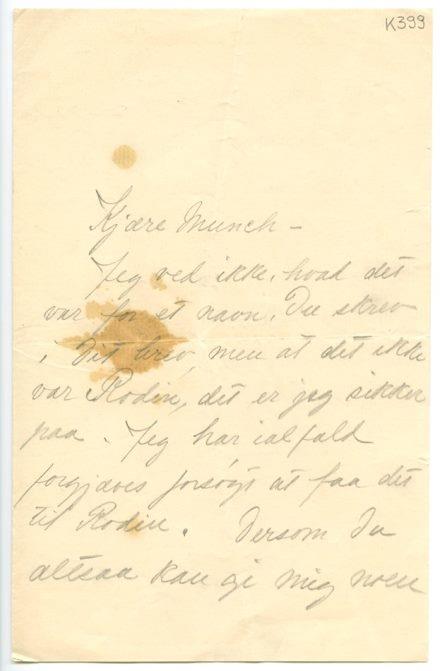 K399
Kjære Munch –
Jeg ved ikke, hvad det
var for et navn, Du skrev
i Dit brev, men at det ikke
var Rodin, det er jeg sikker
paa. Jeg har ialfald
forgjæves forsøgt at faa det
til Rodin. Dersom Du
altsaa kan gi mig noen